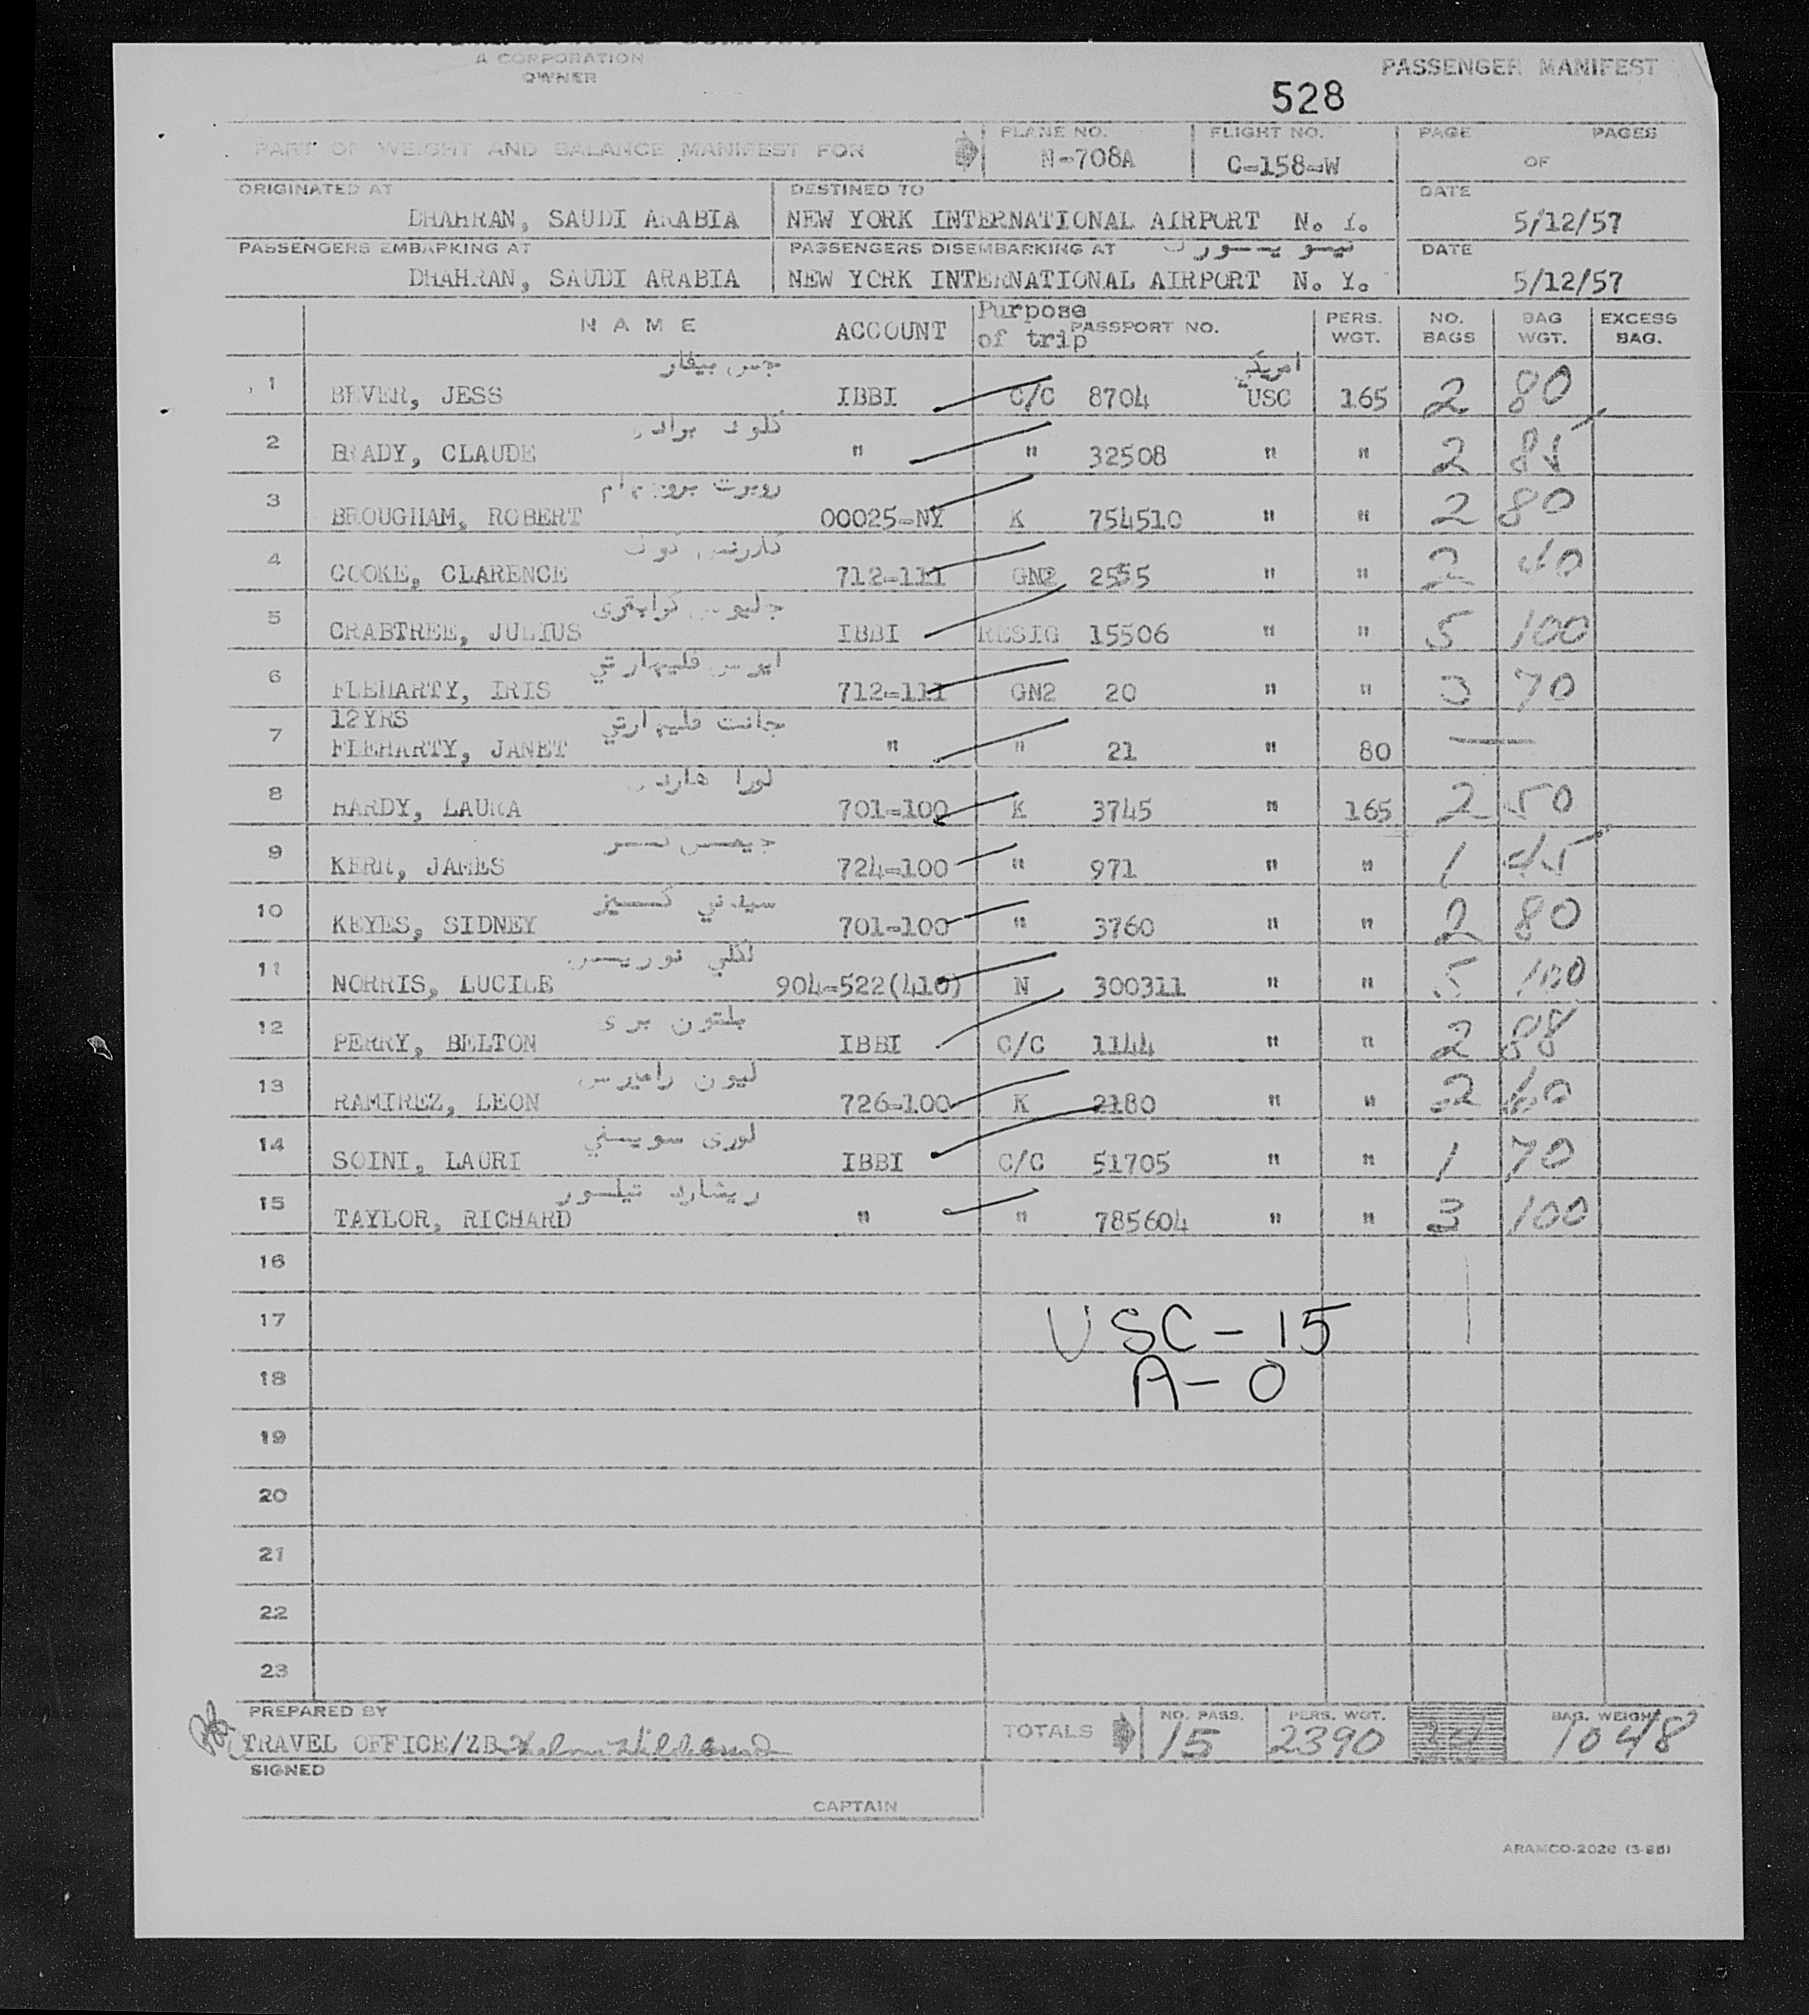 A CORPORATION
OWNER
PASSENGER MANIFEST
528
PART OF WEIGHT AND BALANCE MANIFEST FOR
PLANE NO.
N-708A
FLIGHT NO.
C-158-W
PAGE OF PAGES
ORIGINATED AT
DHAHRAN, SAUDI ARABIA
DESTINED TO
NEW YORK INTERNATIONAL AIRPORT N. Y.
DATE
5/12/57
PASSENGERS EMBARKING AT
DHAHRAN, SAUDI ARABIA
PASSENGERS DISEMBARKING AT
NEW YORK INTERNATIONAL AIRPORT N. Y.
DATE
5/12/57
NAME ACCOUNT Purpose of trip PASSPORT NO. PERS. WGT. NO. BAGS BAG WGT. EXCESS BAG.
جس بيفار امريكي
1 BEVER, JESS IBBI C/C 8704 USC 165 2 80
كلود برادي
2 BRADY, CLAUDE " " 32508 " " 2
روبرت
3 BROUGHAM, ROBERT 00025-NY K 754510 " " 2 80
4 COOKE, CLARENCE 712-111 GN2 2555 " " 2 40
5 CRABTREE, JULIUS IBBI RESIG 15506 " " 5 100
ايرس فليهارتي
6 FLEHARTY, IRIS 712-111 GN2 20 " " 3 70
12YRS جانت فليهارتي
7 FLEHARTY, JANET " " 21 " 80 —
لورا هاردي
8 HARDY, LAURA 701-100 K 3745 " 165 2 50
جيمس
9 KERR, JAMES 724-100 " 971 " " 1 45
سيدني كسيز
10 KEYES, SIDNEY 701-100 " 3760 " " 2 80
نوريس
11 NORRIS, LUCILE 904-522(410) N 300311 " " 5 100
بلتون برى
12 PERRY, BELTON IBBI C/C 1144 " " 2
ليون راميرس
13 RAMIREZ, LEON 726-100 K 2180 " " 2
لورى سويسني
14 SOINI, LAURI IBBI C/C 51705 " " 1 70
ريشارد تيلور
15 TAYLOR, RICHARD " " 785604 " " 3 100
16
17 USC-15
18 A-0
19
20
21
22
23
PREPARED BY
TRAVEL OFFICE/ZB
TOTALS
NO. PASS.
15
PERS. WGT.
2390
34
BAG. WEIGHT
1048
SIGNED
CAPTAIN
ARAMCO-2020